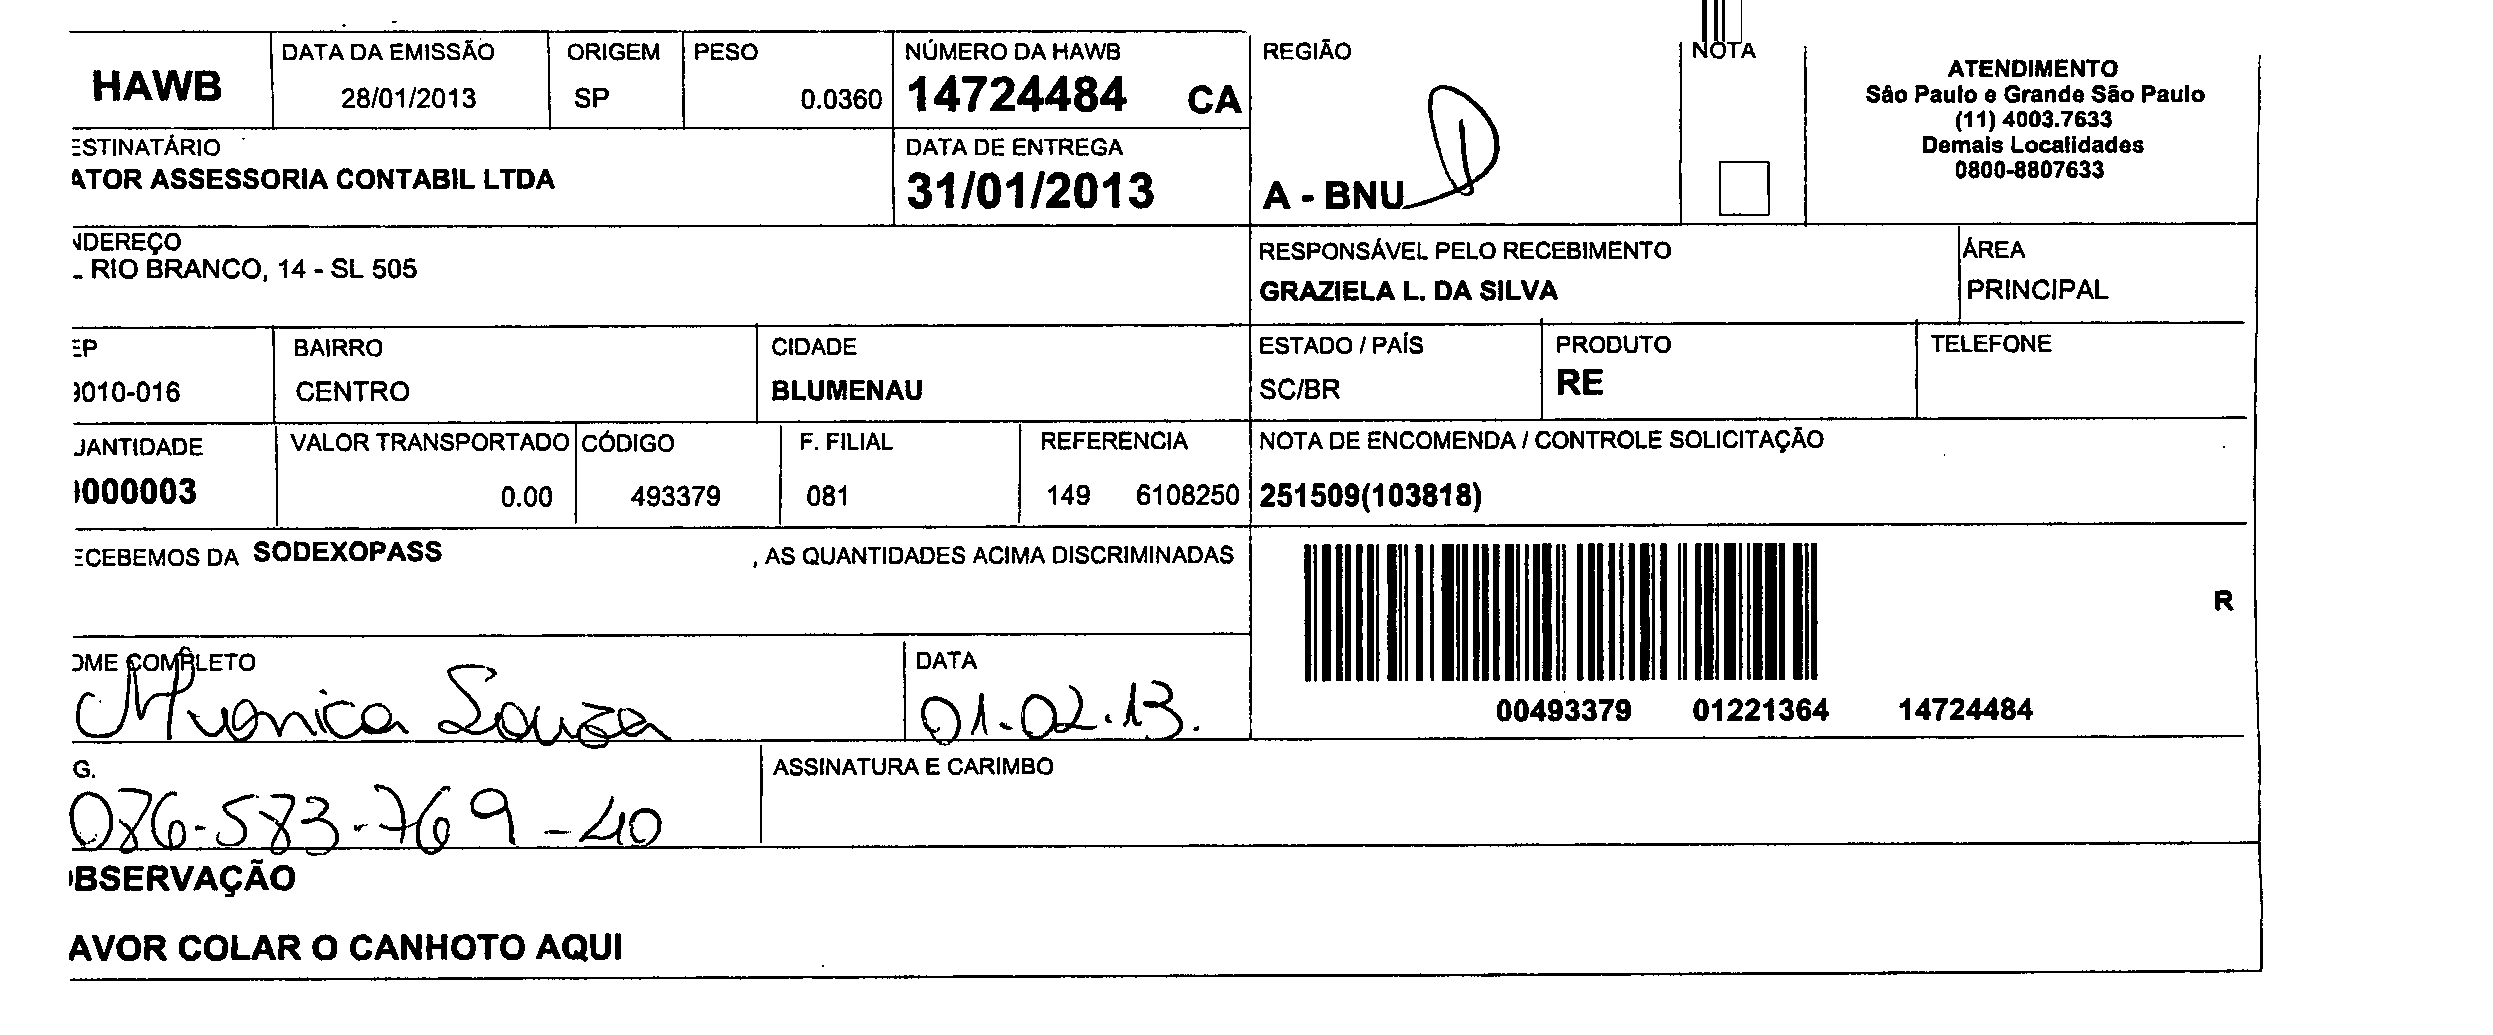 HAWB
DATA DA EMISSÃO
28/01/2013
ORIGEM
SP
PESO
0.0360
NÚMERO DA HAWB
14724484 CA
REGIÃO
A - BNU
NOTA
ATENDIMENTO
São Paulo e Grande São Paulo
(11) 4003.7633
Demais Localidades
0800-8807633
ESTINATÁRIO
ATOR ASSESSORIA CONTABIL LTDA
DATA DE ENTREGA
31/01/2013
NDEREÇO
RIO BRANCO, 14 - SL 505
RESPONSÁVEL PELO RECEBIMENTO
GRAZIELA L. DA SILVA
ÁREA
PRINCIPAL
EP
9010-016
BAIRRO
CENTRO
CIDADE
BLUMENAU
ESTADO / PAÍS
SC/BR
PRODUTO
RE
TELEFONE
UANTIDADE
000003
VALOR TRANSPORTADO
0.00
CÓDIGO
493379
F. FILIAL
081
REFERENCIA
149 6108250
NOTA DE ENCOMENDA / CONTROLE SOLICITAÇÃO
251509(103818)
ECEBEMOS DA SODEXOPASS , AS QUANTIDADES ACIMA DISCRIMINADAS
R
00493379 01221364 14724484
OME COMPLETO
Muonica Souza
DATA
01.02.13.
G.
086-583-769-40
ASSINATURA E CARIMBO
BSERVAÇÃO
AVOR COLAR O CANHOTO AQUI